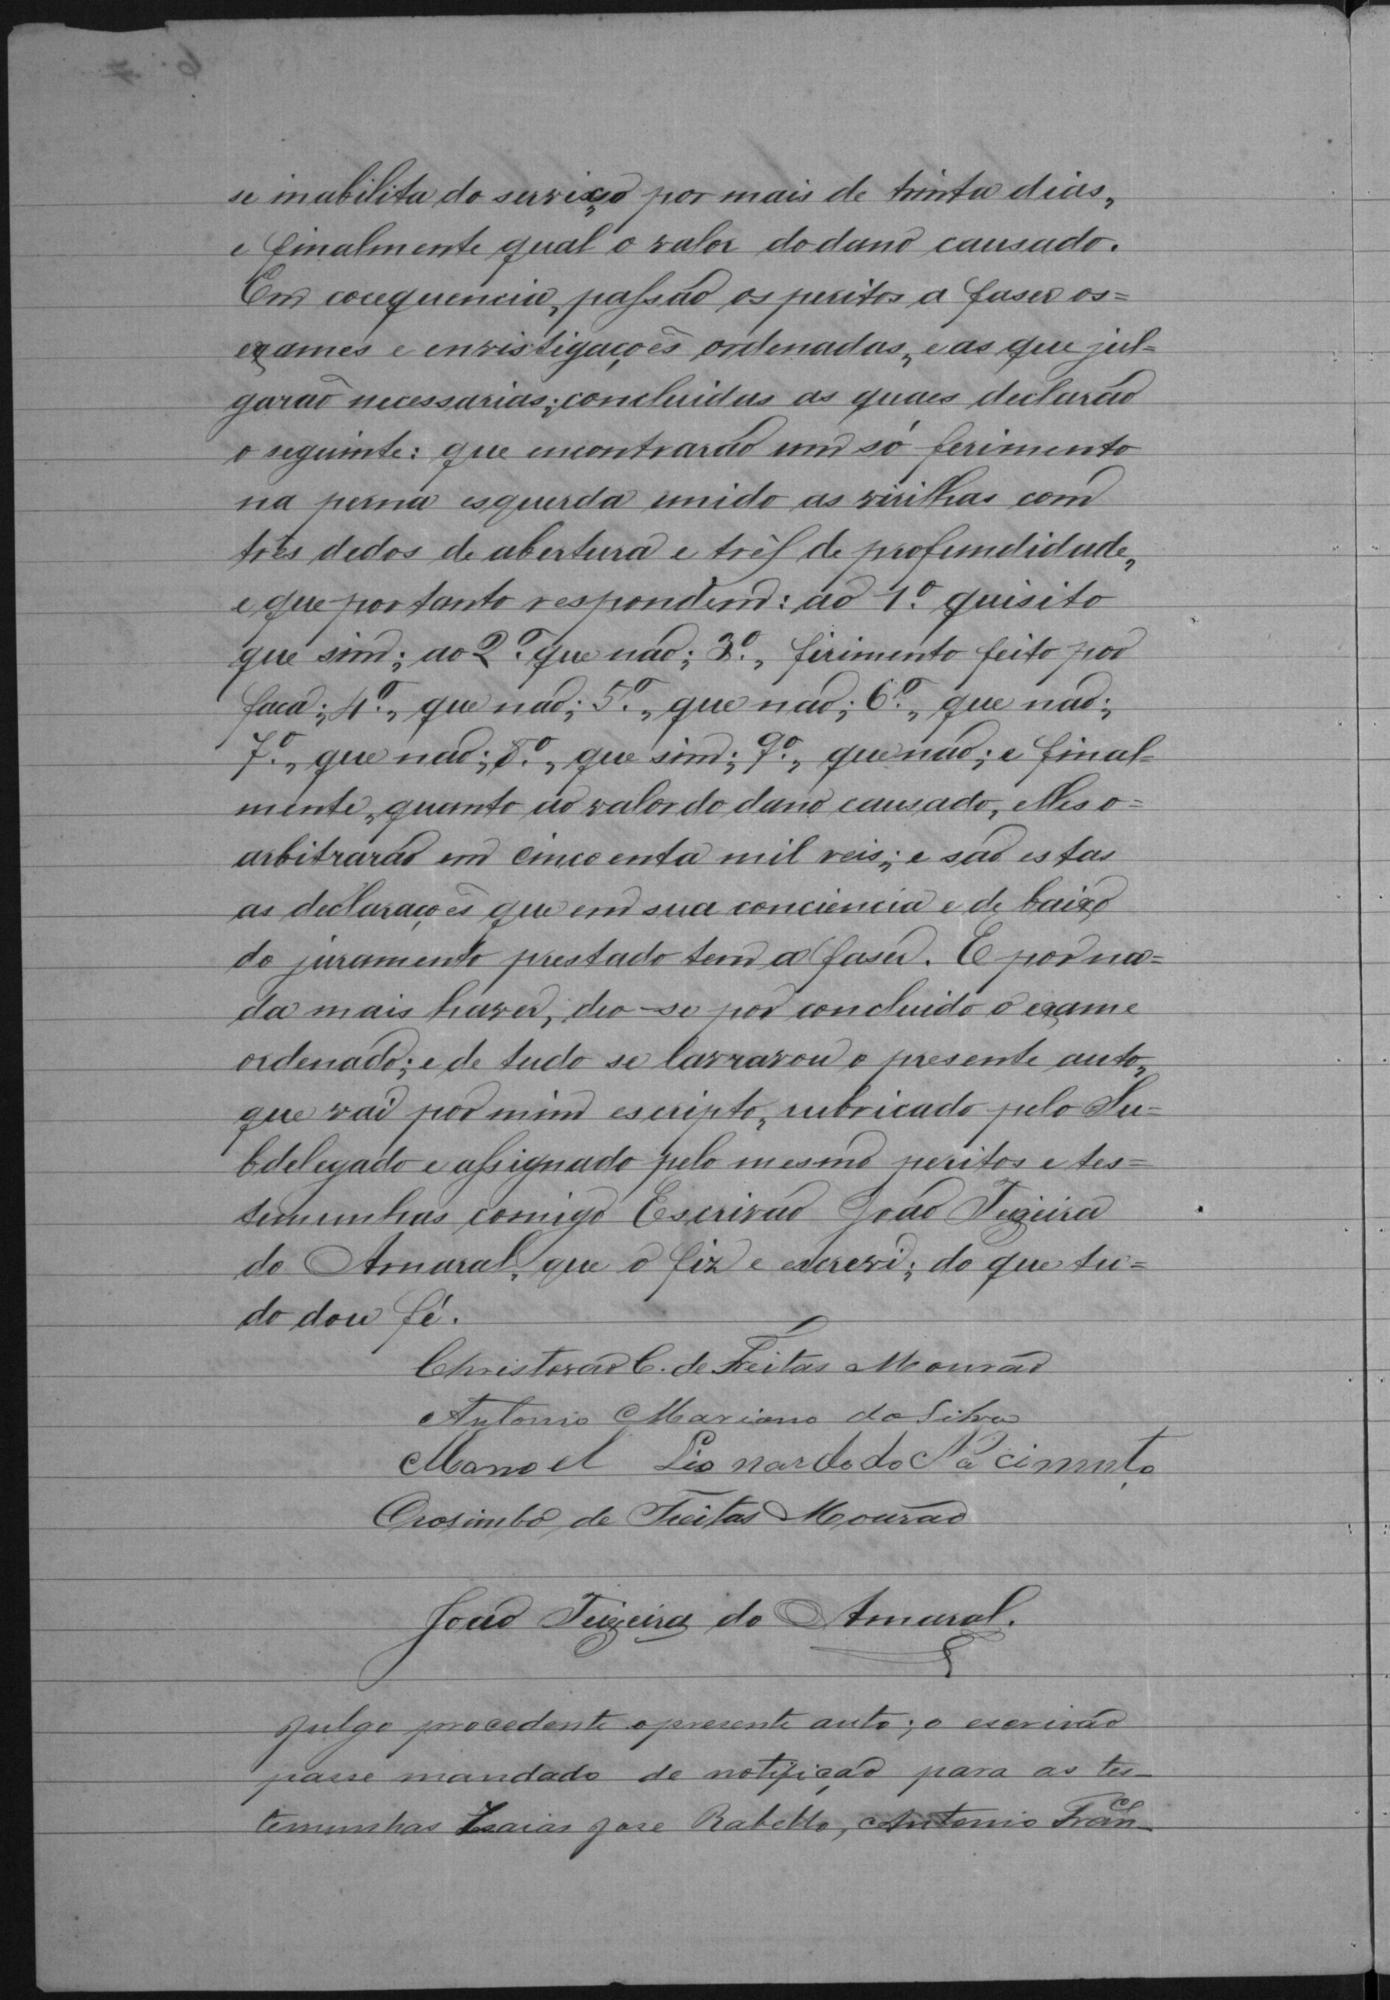 se inabilita do serviço por mais de trinta dias,
e finalmente qual o valor do dano causado.
Em cocequencia, passão os peritos a faser os=
exames e envistigações ordenadas, e as que jul=
garão necessarias; concluidas as quaes declarão
o seguinte: que encontrarão um só ferimento
na perna esquerda unido as virilhas com
três dedos de abertura e três de profundidade,
e que portanto respondem: ao 1.º quisito
que sim; ao 2.º que não; 3.º, firimento feito por
faca; 4.º, que não; 5.º, que não; 6.º, que não;
7.º, que não; 8.º, que sim; 9.º, que não; e final=
mente, quanto ao valor do dano causado, elles o=
arbitrarão em cincoenta mil reis; e são estas
as declarações que em sua conciencia e de baixo
do juramento prestado tem a faser. E por na=
da mais haver, deo-se por concluido o exame
ordenado; e de tudo se lavrarou o presente auto,
que vai por mim escripto, rubricado pelo Su=
bdelegado e assignado pelo mesmo peritos e tes=
temunhas comigo Escrivão João Teixeira
do Amaral, que o fiz e escrevi; do que tu=
do dou fé.
Christovão C. de Freitas Mourão
Antonio Mariano da Silva
Manoel Lionardo do Nacimento
Orosimbo de Freitas Mourão
João Teixeira do Amaral.
Julgo procedente o presente auto; o escrivão
passe mandado de notificação para as tes-
temunhas Isaias Jose Rabello, Antonio Fran-